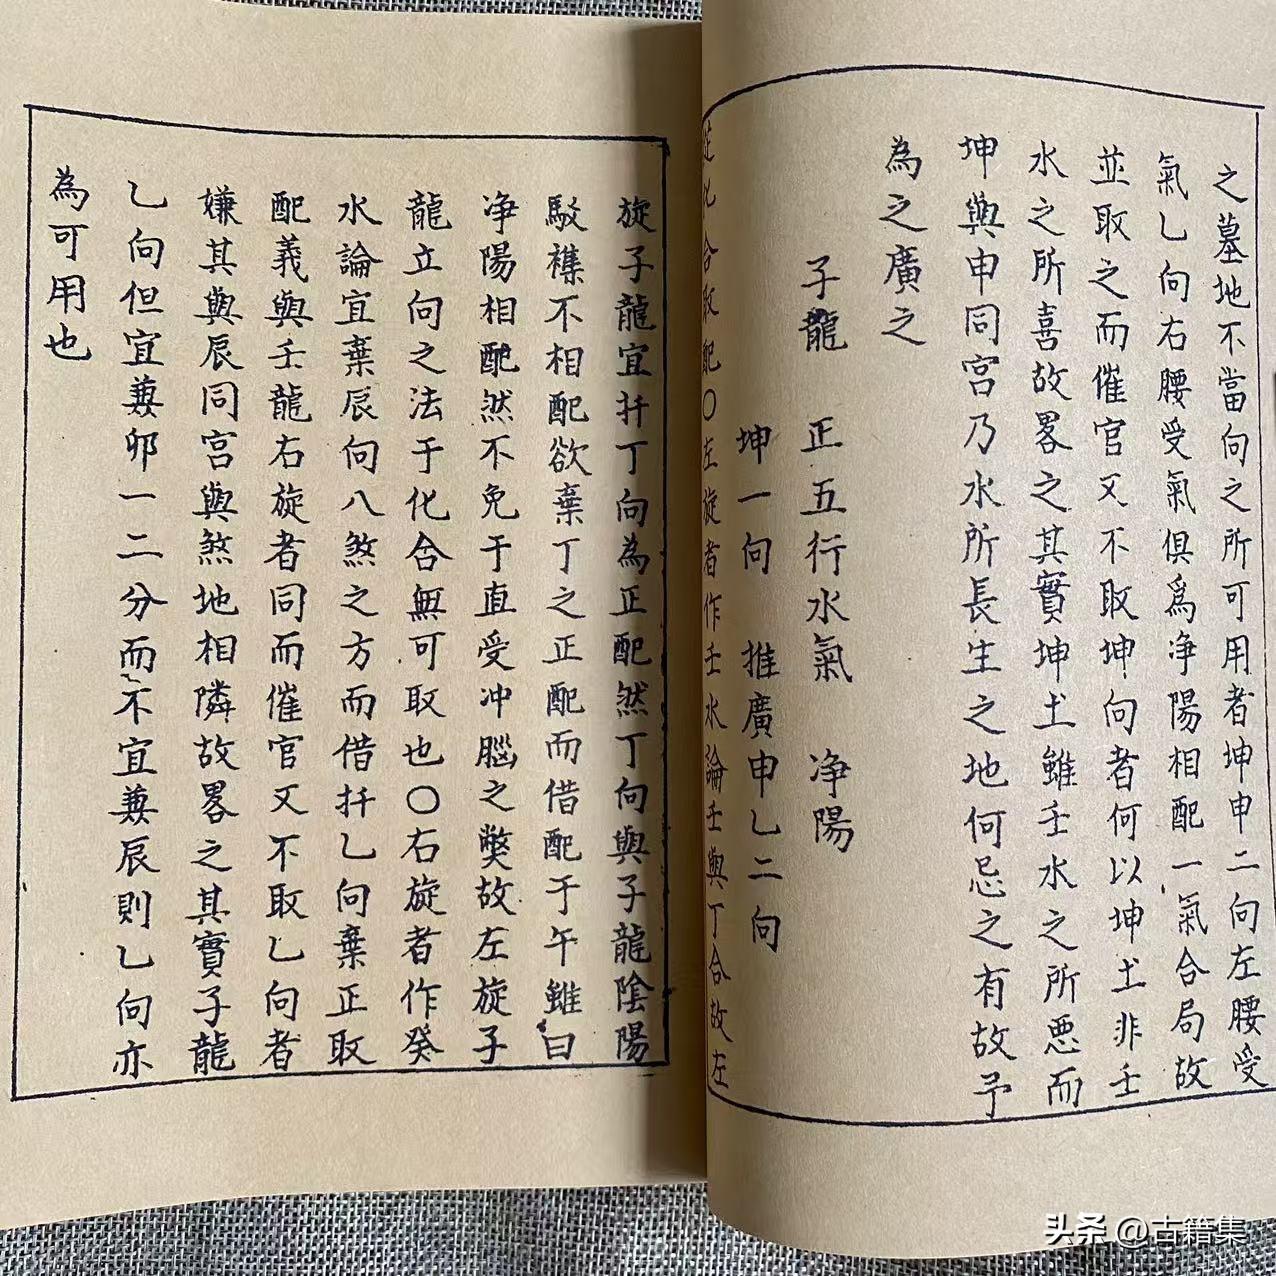 之墓地不當向之所可用者坤申二向左腰受
氣乙向右腰受氣俱爲净陽相配一氣合局故
並取之而催官又不取坤向者何以坤土非壬
水之所喜故畧之其實坤土雖壬水之所悪而
坤與申同宫乃水所長生之地何忌之有故予
為之廣之
子龍 正五行水氣 净陽
坤一向 推廣申乙二向
從化合取配〇左旋者作壬水論壬與丁合故左
旋子龍宜扦丁向為正配然丁向與子龍陰陽
駁襍不相配欲棄丁之正配而借配于午雖曰
净陽相配然不免于直受冲腦之獘故左旋子
龍立向之法于化合無可取也〇右旋者作癸
水論宜棄辰向八煞之方而借扦乙向棄正取
配義與壬龍右旋者同而催官又不取乙向者
嫌其與辰同宫與煞地相隣故畧之其實子龍
乙向但宜兼卯一二分而不宜兼辰則乙向亦
為可用也
头条 @古籍集